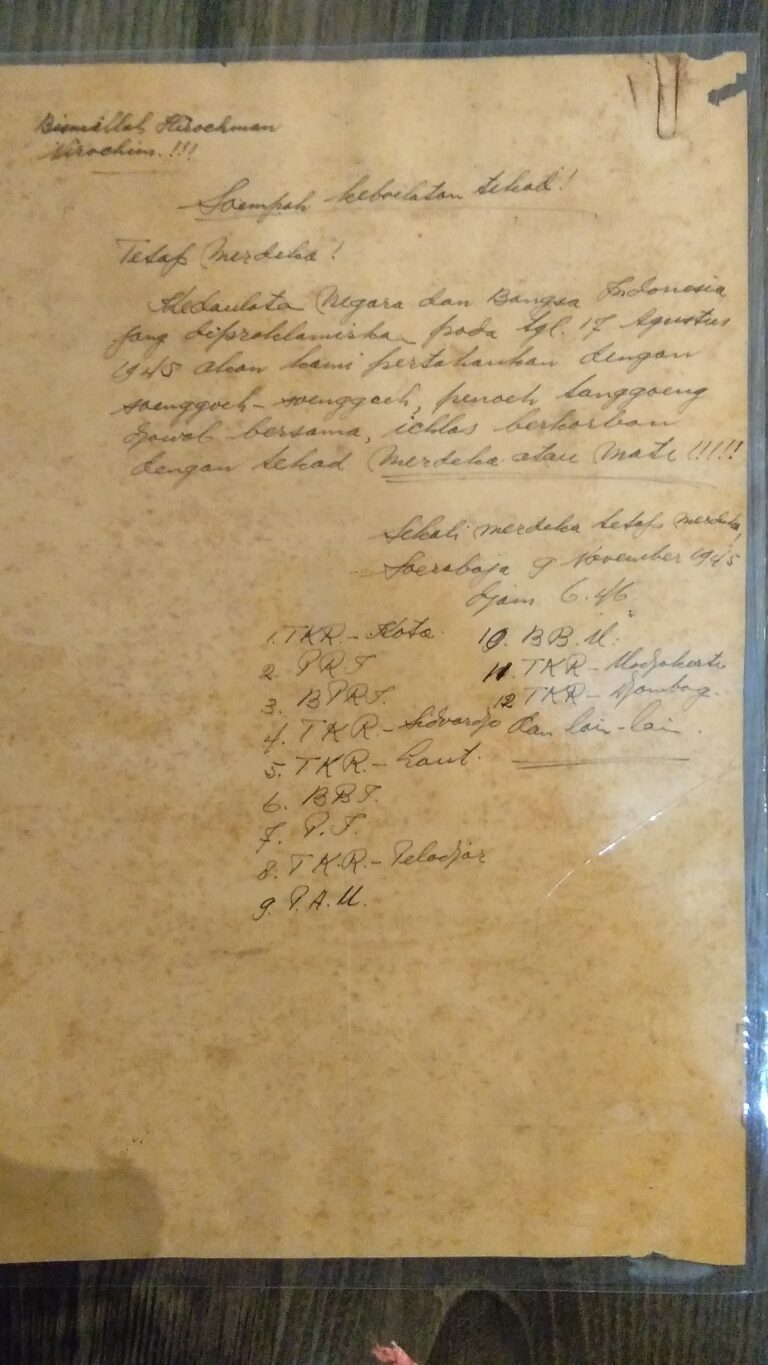 Bismillah Hirochman
Nirochim.!!!
Soempah keboelatan tekad!
Tetap Merdeka!
Kedaulata Negara dan Bangsa Indonesia
jang diproklamirka pada tgl. 17 Agustus
1945 akan kami pertahankan dengan
soenggoeh-soenggoeh, penoeh tanggoeng
djawab bersama, ichlas berkorban
dengan tekad Merdeka atau Mati!!!!!
Sekali merdeka tetap merdeka,
Soerabaja 9 November 1945
Djam 6.46.
1. TKR.- Kota.
2. P R I
3. B P R I.
4. T K R - Sidoardjo
5. T K R.- Laut.
6. B B I.
7. P. I.
8. T K.R.- Peladjar
9. P.A.M.
10. B B. M.
11. TKR - Modjokerto
12 TKR - Djombag.
dan lain-lain.